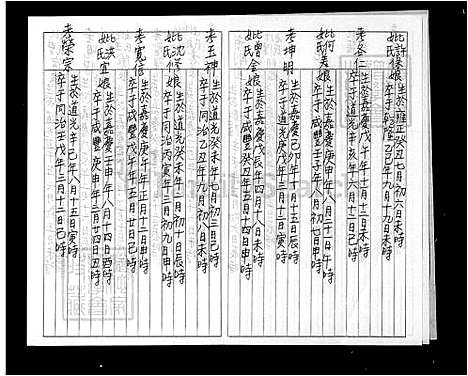 妣許緣娘 生於雍正癸丑七月初六日未時
卒于乾隆乙巳七月初九日未時
考各仁 生於嘉慶戊午年十月十二日未時
卒于道光辛亥年六月十二日己時
妣何
氏 娘 生於嘉慶庚申年八月二十一日午時
卒于咸豐壬子年八月初七日申時
考坤明 生於嘉慶己卯年八月十五日辰時
卒于道光庚戌年三月十三日寅時
妣曾金娘
氏 生於嘉慶戊辰年四月十八日未時
卒于咸豐癸丑年五月十四日申時
考玉神 生於道光癸未年七月初三日己時
卒于同治乙丑年九月初八日未時
妣沈 娘
氏 生於道光癸未年二月初十日辰時
卒于同治丙寅年三月初九日申時
考寬信 生於嘉慶庚午年正月十二日申時
卒于咸豐戊午年五月廿日己時
妣洪宜娘
氏 生於嘉慶壬申年八月十四日酉時
卒于咸豐庚申年二月廿四日丑時
考榮宗 生於道光辛巳年八月十五日寅時
卒于同治壬戌年三月十二日己時